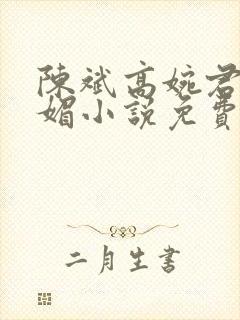 陳斌高婉君
媚小說免費
二月生書